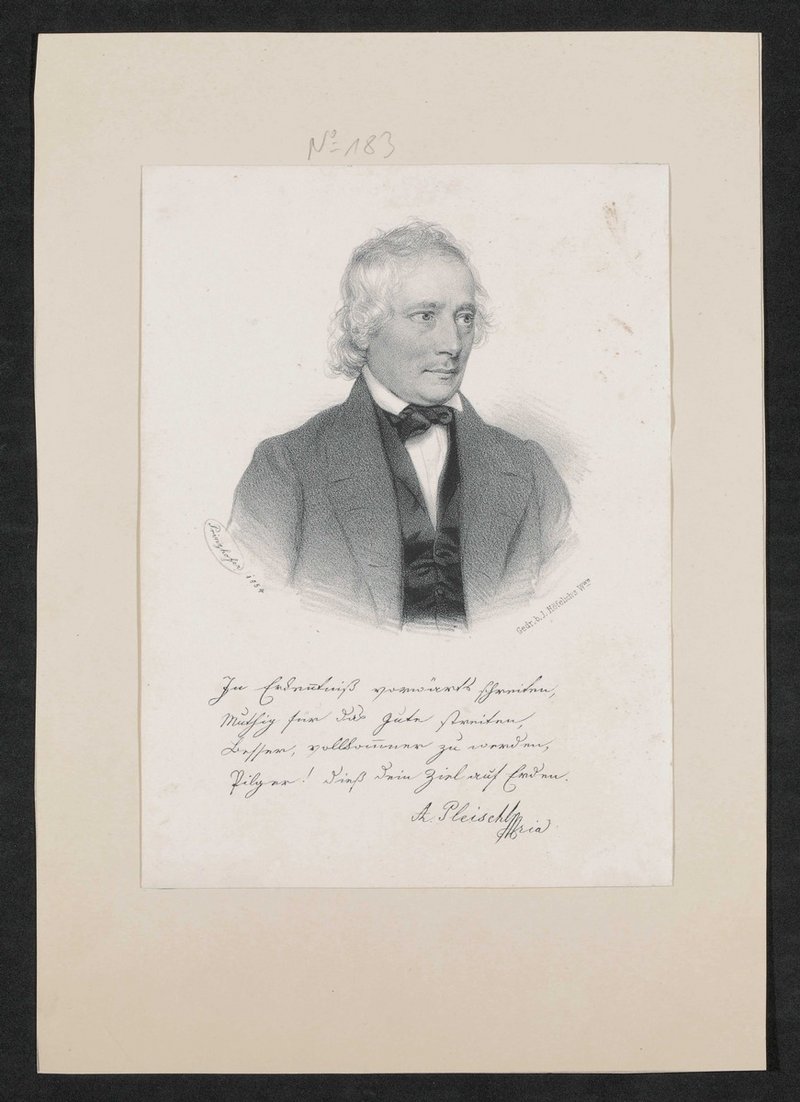 No 183
Prinzhofer 1854
Gedr. b. J. Höfelich's Wwe
In Erkenntniß vorwärts schreiten,
Muthig für das Gute streiten,
Besser, vollkommner zu werden,
Pilger! dieß dein Ziel auf Erden.
A. Pleischl